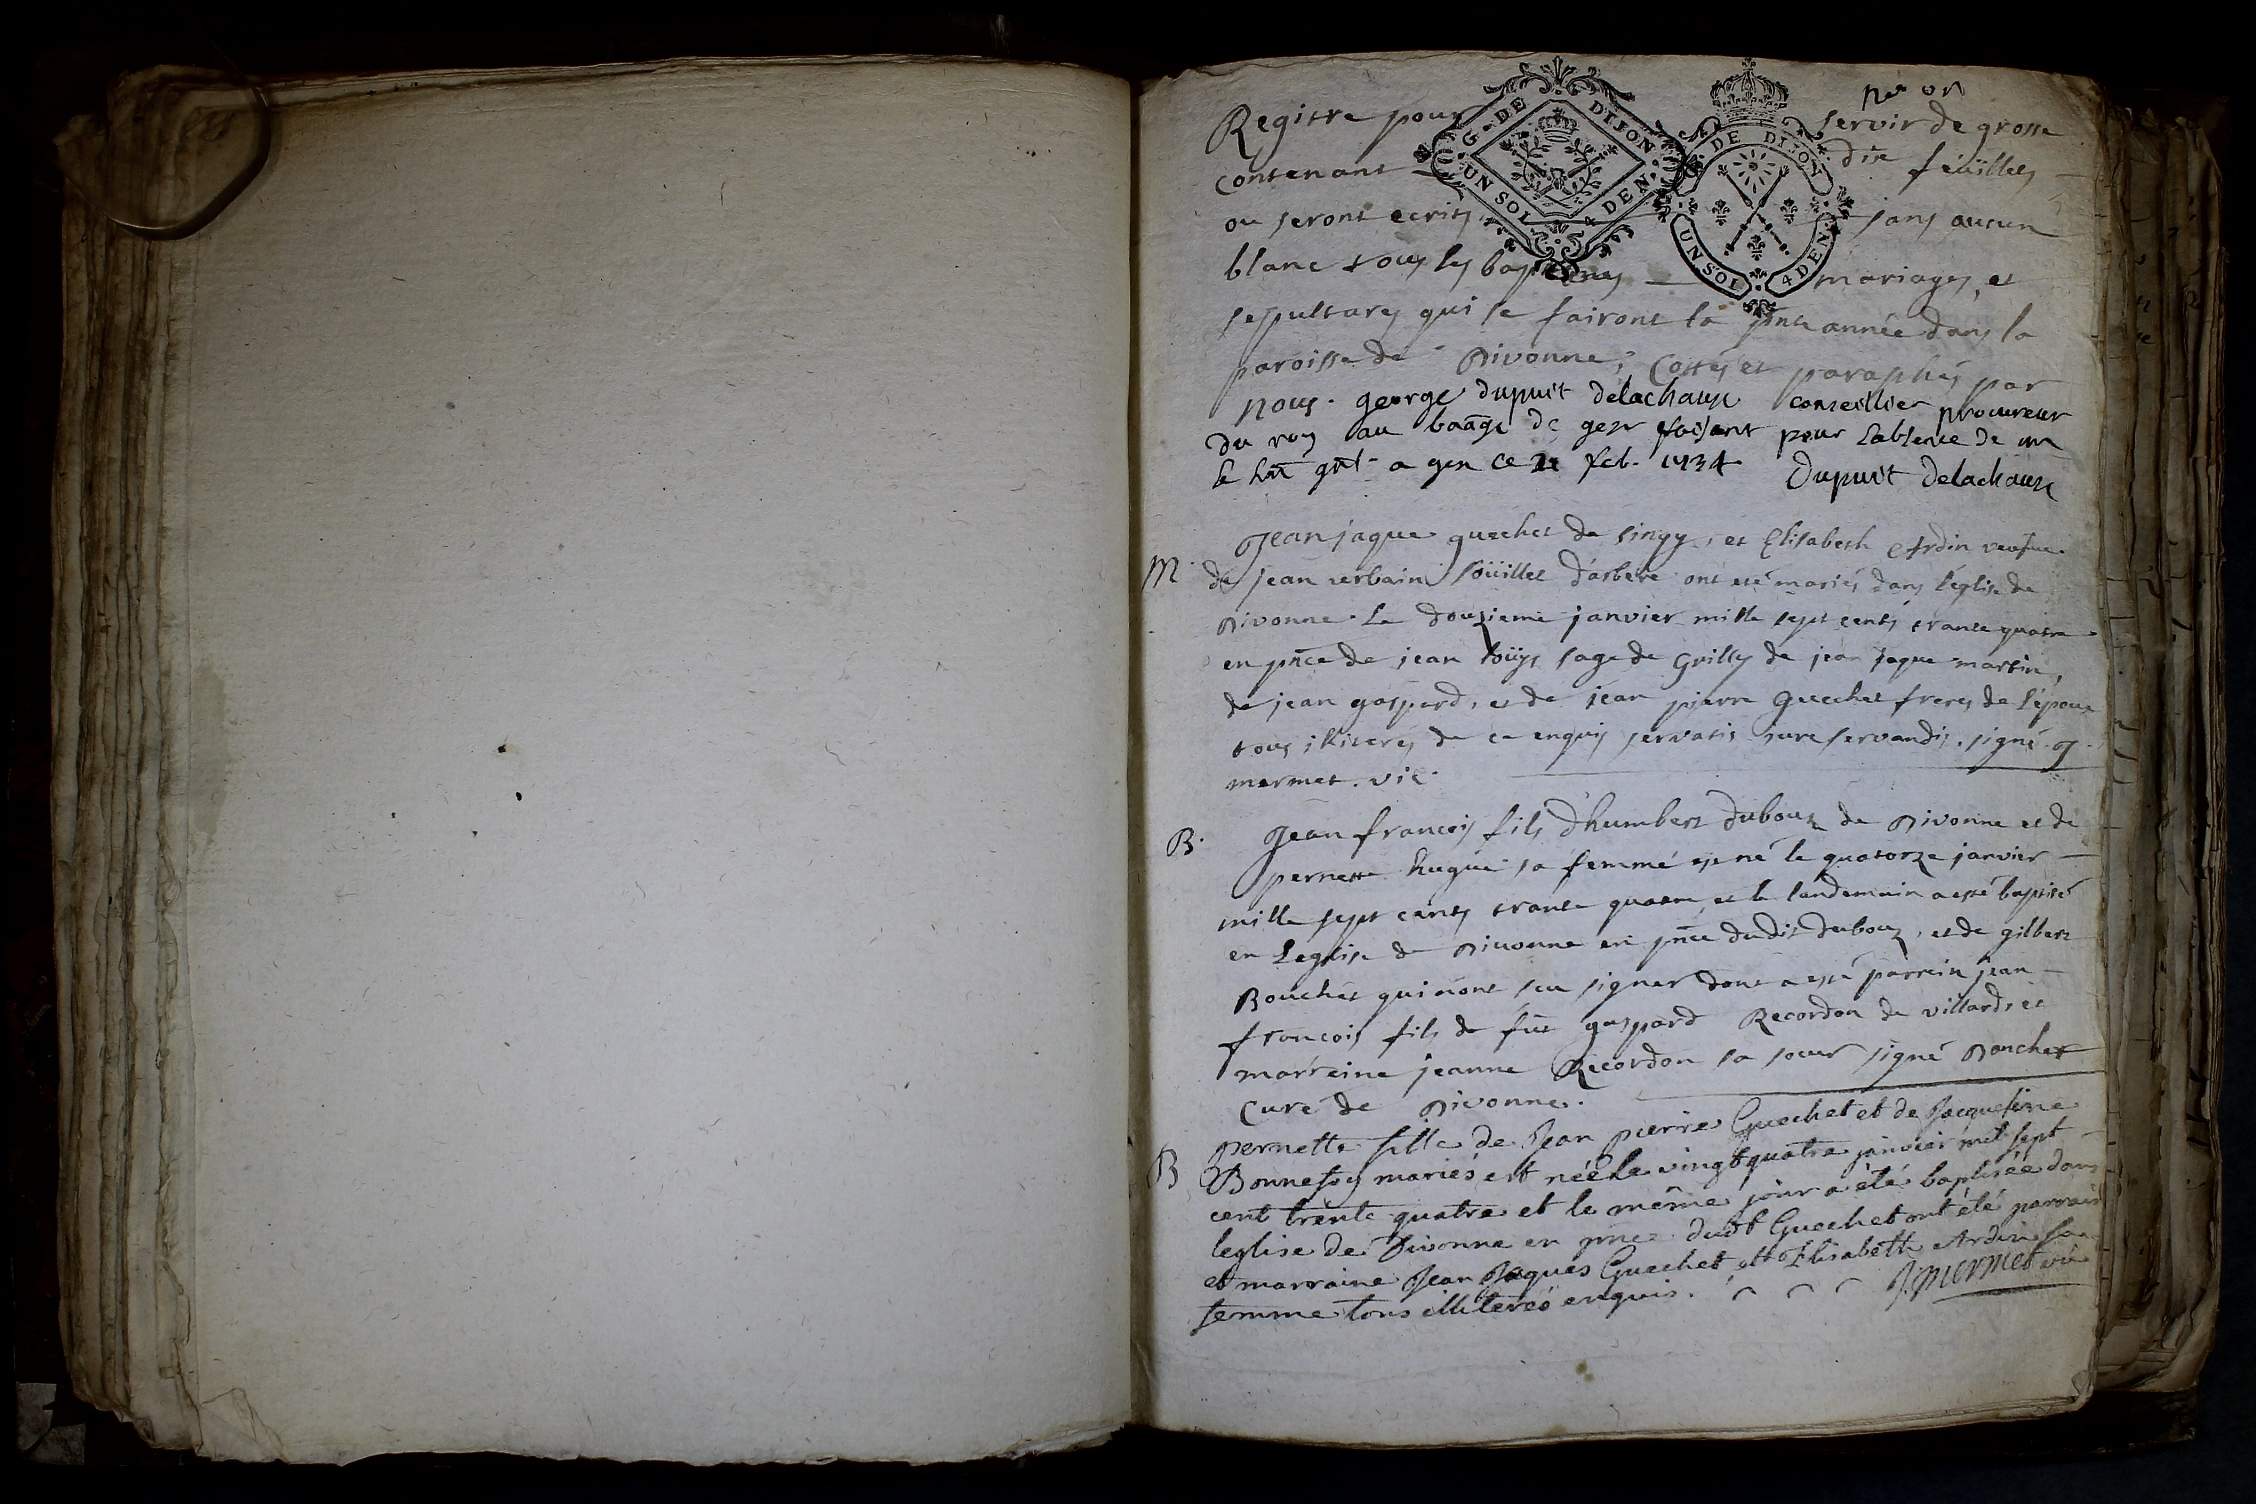 Registre pour servir de grosse
contenant dix feüilles
ou seront ecrits sans aucun
blanc tous les baptemes mariages, et
sepultures qui se fairont la pnte année dans la
paroisse de Divonne, Cottés et paraphés par
nous george dupuit delachaux conseillier procureur
du roy au baage de gex faisant pour l'absence de mr
le lnt gnl a gex ce feb. 1734 Dupuit Delachaux
G. DE DIJON
UN SOL 4 DEN.
G. DE DIJON
UN SOL 4 DEN.
M. Jean jaque guechet de singy, et Elisabeth Ardin veufue
de jean verbain soüillet d'arbere ont été mariés dans l'église de
Divonne le douzieme janvier mille sept cents trante quatre
en pnce de jean loüys sage de Grilly de jean jaque martin,
de jean gaspard, et de jean pierre Guechet freres de l'époux
tous illiteres de ce enquis servatis jure servandis. signé J.
mermet. vic.
B. Jean francois fils d'humbert duboux de Divonne et de
pernette hugue sa femme est né le quatorze janvier
mille sept cents trante quatre, et le landemain a esté baptisé
en L'eglise de Divonne en pnce dudit duboux, et de gilbert
Bouchet qui n'ont sçu signer dont a esté parrein jean
francois fils de fût gaspard Recordon de villard, et
marreine jeanne Recordon sa soeur signé Boucher
Curé de Divonne.
B pernette fille de Jean pierre Guechet et de Jacqueline
Bonnefoy mariés est née le vingt quatre janvier mil sept
cent trente quatre et le même jour a été baptisée dans
leglise de Divonne en pnce dudt Guechet ont été parrain
et marraine Jean Jaques Guechet et Elisabeth Ardin sa
femme tous illiterés enquis. J. Mermet vic